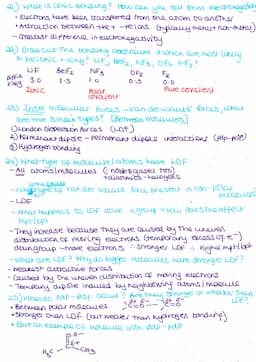 21) What is Ionic bonding? How can you tell from electronegativity
• Electrons have been transferred from one atom to another
• Attraction between +ve & -ve ions (typically metal + non-metal)
• Greatest difference in electronegativity
22) Draw out the bonding continuum & which are most likely to be ionic → LiF, BeF2, NF3, OF2 & F2?
LiF BeF2 NF3 OF2 F2
3.0 0.5 0.0
Ionic Polar covalent Pure covalent
23) Inter molecular forces → van der waals' forces, what are the 3 main types? [Between molecules]
① London dispersion forces (LDF)
② Permanent dipole - permanent dipole interactions (pdp-pdp)
③ Hydrogen bonding
24) What type of molecules/atoms have LDF
- All atoms/molecules
- What type of van der waals force present in non-polar molecules
- LDF
- What happens to LDF down a group & how does the affect mpt/bpt
- They increase because they are caused by the uneven distribution of moving electrons
down group → more electrons ∴ stronger LDF ∴ higher mpt/bpt
- What are LDF? Why do bigger molecules have stronger LDF?
• Weakest attractive forces
• Caused by the uneven distribution of moving electrons
• Temporary dipole induced by neighbouring atoms/molecule
25) When do pdp-pdp occur? Are they stronger or weaker than LDF?
• Between polar molecules
• Stronger than LDF (but weaker than hydrogen bonding)
• Give an example of molecule with pdp-pdp
H3C CH3